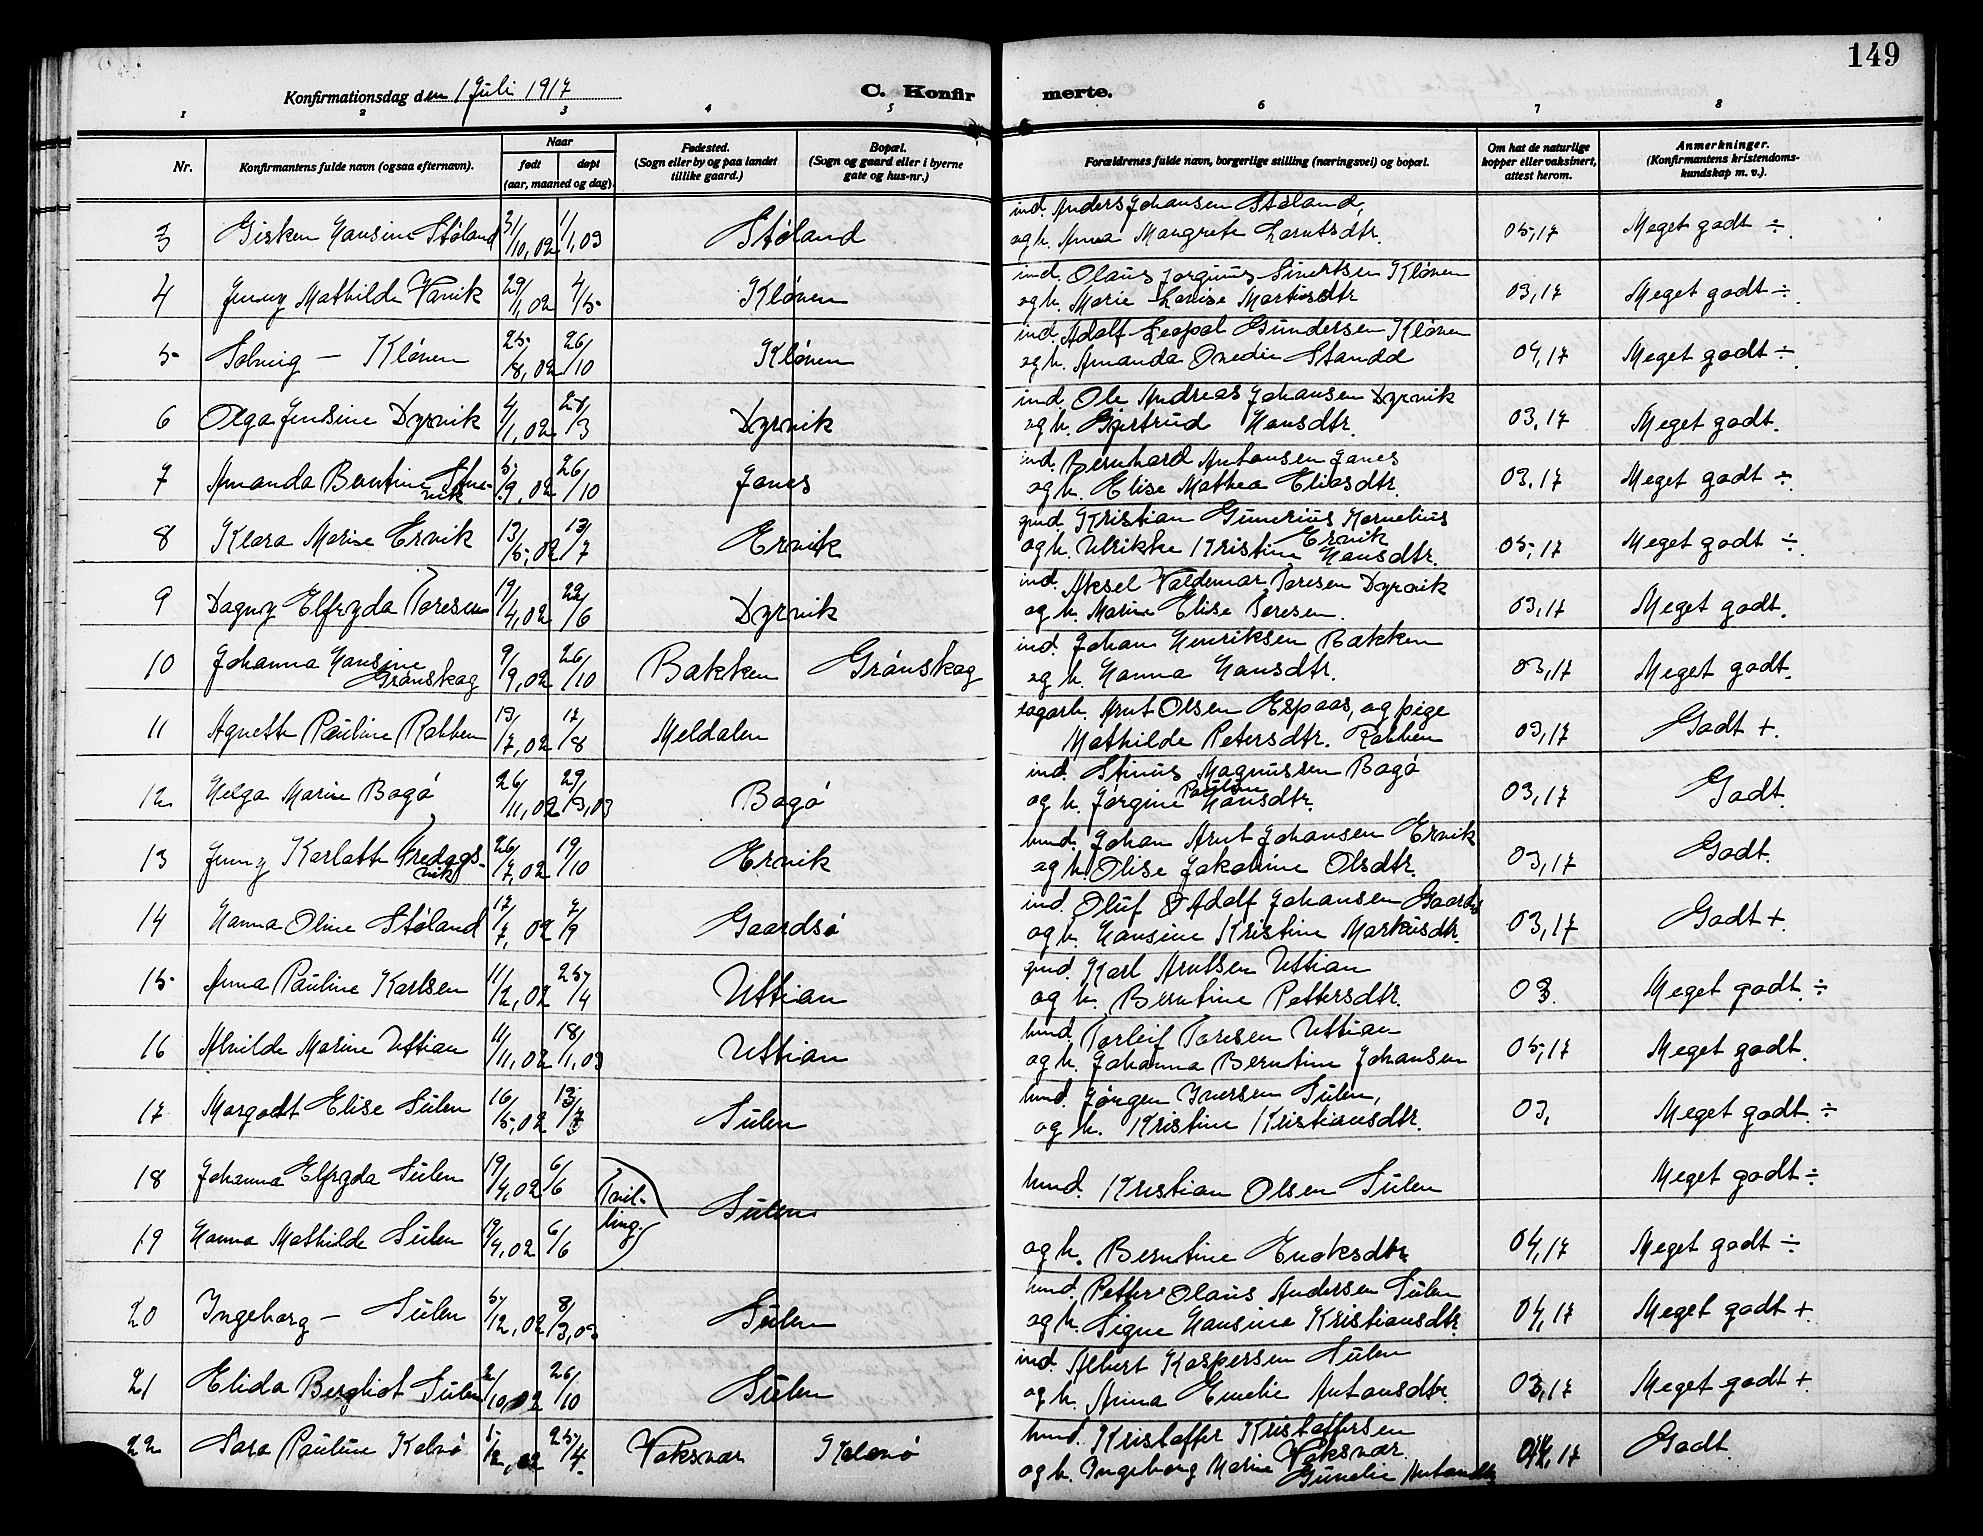 149
Konfirmationsdag den 1 Juli 1917
C. Konfirmerte.
1 2 3 4 5 6 7 8
Nr. Konfirmantens fulde navn (ogsaa efternavn). Naar født døpt (aar, maaned og dag). Fødested. (Sogn eller by og paa landet tillike gaard.) Bopæl. (Sogn og gaard eller i byerne gate og hus-nr.) Forældrenes fulde navn, borgerlige stilling (næringsvei) og bopæl. Om hat de naturlige kopper eller vaksinert, attest herom. Anmerkninger. (Konfirmantens kristendoms-kundskap m. v.).
3 Gisken Hansine Støland 31/10,02 1/1,03 Støland ind. Anders Johansen Støland,
og h. Anna Margrete Larntsdtr. 05,17 Meget godt ÷.
4 Jenny Mathilde Vanik 29/1,02 4/5 Kløven ind. Olaus Jørginus Sivertsen Kløven
og h. Marie Lovise Martinsdtr 03,17 Meget godt ÷.
5 Solveig — Kløven 25/8,02 26/10 Kløven ind. Adolf Leopol Gundersen Kløven
og h. Amanda Ovedie Standd 04,17 Meget godt ÷
6 Olga Jensine Dyrvik 4/1,02 28/3 Dyrvik ind. Ole Andreas Johansen Dyrvik
og h. Gjertrud Hansdtr. 03,17 Meget godt.
7 Amanda Berntine 5/9,02 26/10 Janes ind. Bernhard Antonsen Janes
og h. Elise Mathea Eliasdtr. 03,17 Meget godt ÷
8 Klara Marie Ervik 13/5,02 13/7 Ervik gmd. Kristian Gunerius Kornelius Ervik
og h. Ulrikke Kristine Hansdtr. 05,17 Meget godt ÷.
9 Dagny Elfryda Toresen 19/4,02 22/6 Dyrvik ind. Aksel Valdemar Toresen Dyrvik
og h. Marie Elise Toresen. 03,17 Meget godt.
10 Johanna Hansine Grønskag 9/9,02 26/10 Bakken Grønskag ind. Johan Henriksen Bakken
og h. Hanna Hansdtr. 03,17 Meget godt.
11 Agnette Pauline Rabben 13/7,02 17/8 Meldalen Arnt Olsen Espaas, og pige
Mathilde Petersdtr. Rabben 03,17 Godt +.
12. Helga Marie Bogø 26/11,02 29/3,03 Bogø ind. Stinus Magnussen Bogø
og h. Jørgine Pauline Hansdtr. 03,17 Godt.
13 Jenny Karlotte Fredagsvik 26/7,02 19/10 Ervik hmd. Johan Arnt Johansen Ervik
og h. Olise Jakobine Olsdtr. 03,17 Godt.
14 Hanna Oline Støland 17/7,02 7/9 Gaardsø ind. Oluf Adolf Johansen Gaardsø
og h. Hansine Kristine Markusdtr. 03,17 Godt +.
15 Anna Pauline Karlsen 11/2,02 25/4 Uttian gmd. Karl Arntsen Uttian
og h. Berntine Pettersdtr. 03. Meget godt. ÷
16 Alvilde Marine Uttian 11/11,02 18/1,03 Uttian hmd. Torleif Toresen Uttian
og h. Johanna Berntine Johansen 05,17 Meget godt.
17 Margodt Elise Sulen 16/5,02 13/7 Sulen hmd. Jørgen Iversen Sulen,
og h. Kristine Kristiansdtr. 03, Meget godt. ÷
18 Johanna Elfryda Sulen 19/4,02 6/6 Tvilling. Sulen hmd. Kristian Olsen Sulen Meget godt ÷
19 Hanna Mathilde Sulen 19/4,02 6/6 og h. Berntine Enoksdtr 04,17 Meget godt ÷
20 Ingeborg — Sulen 5/12,02 8/3,03 Sulen hmd. Petter Olaus Andersen Sulen
og h. Signe Hansine Kristiansdtr. 04,17 Meget godt +
21 Elida Bergliot Sulen 2/10,02 26/10 Sulen ind. Albert Kaspersen Sulen
og h. Anna Emelie Antonsdtr. 03,17 Meget godt +.
22 Sara Pauline Kalvø 5/2,02 25/4. Vaksvær Kalvø hmd. Kristoffer Kristoffersen Vaksvær
og h. Ingeborg Marie Gunelie Antondtr 04,17 Godt.